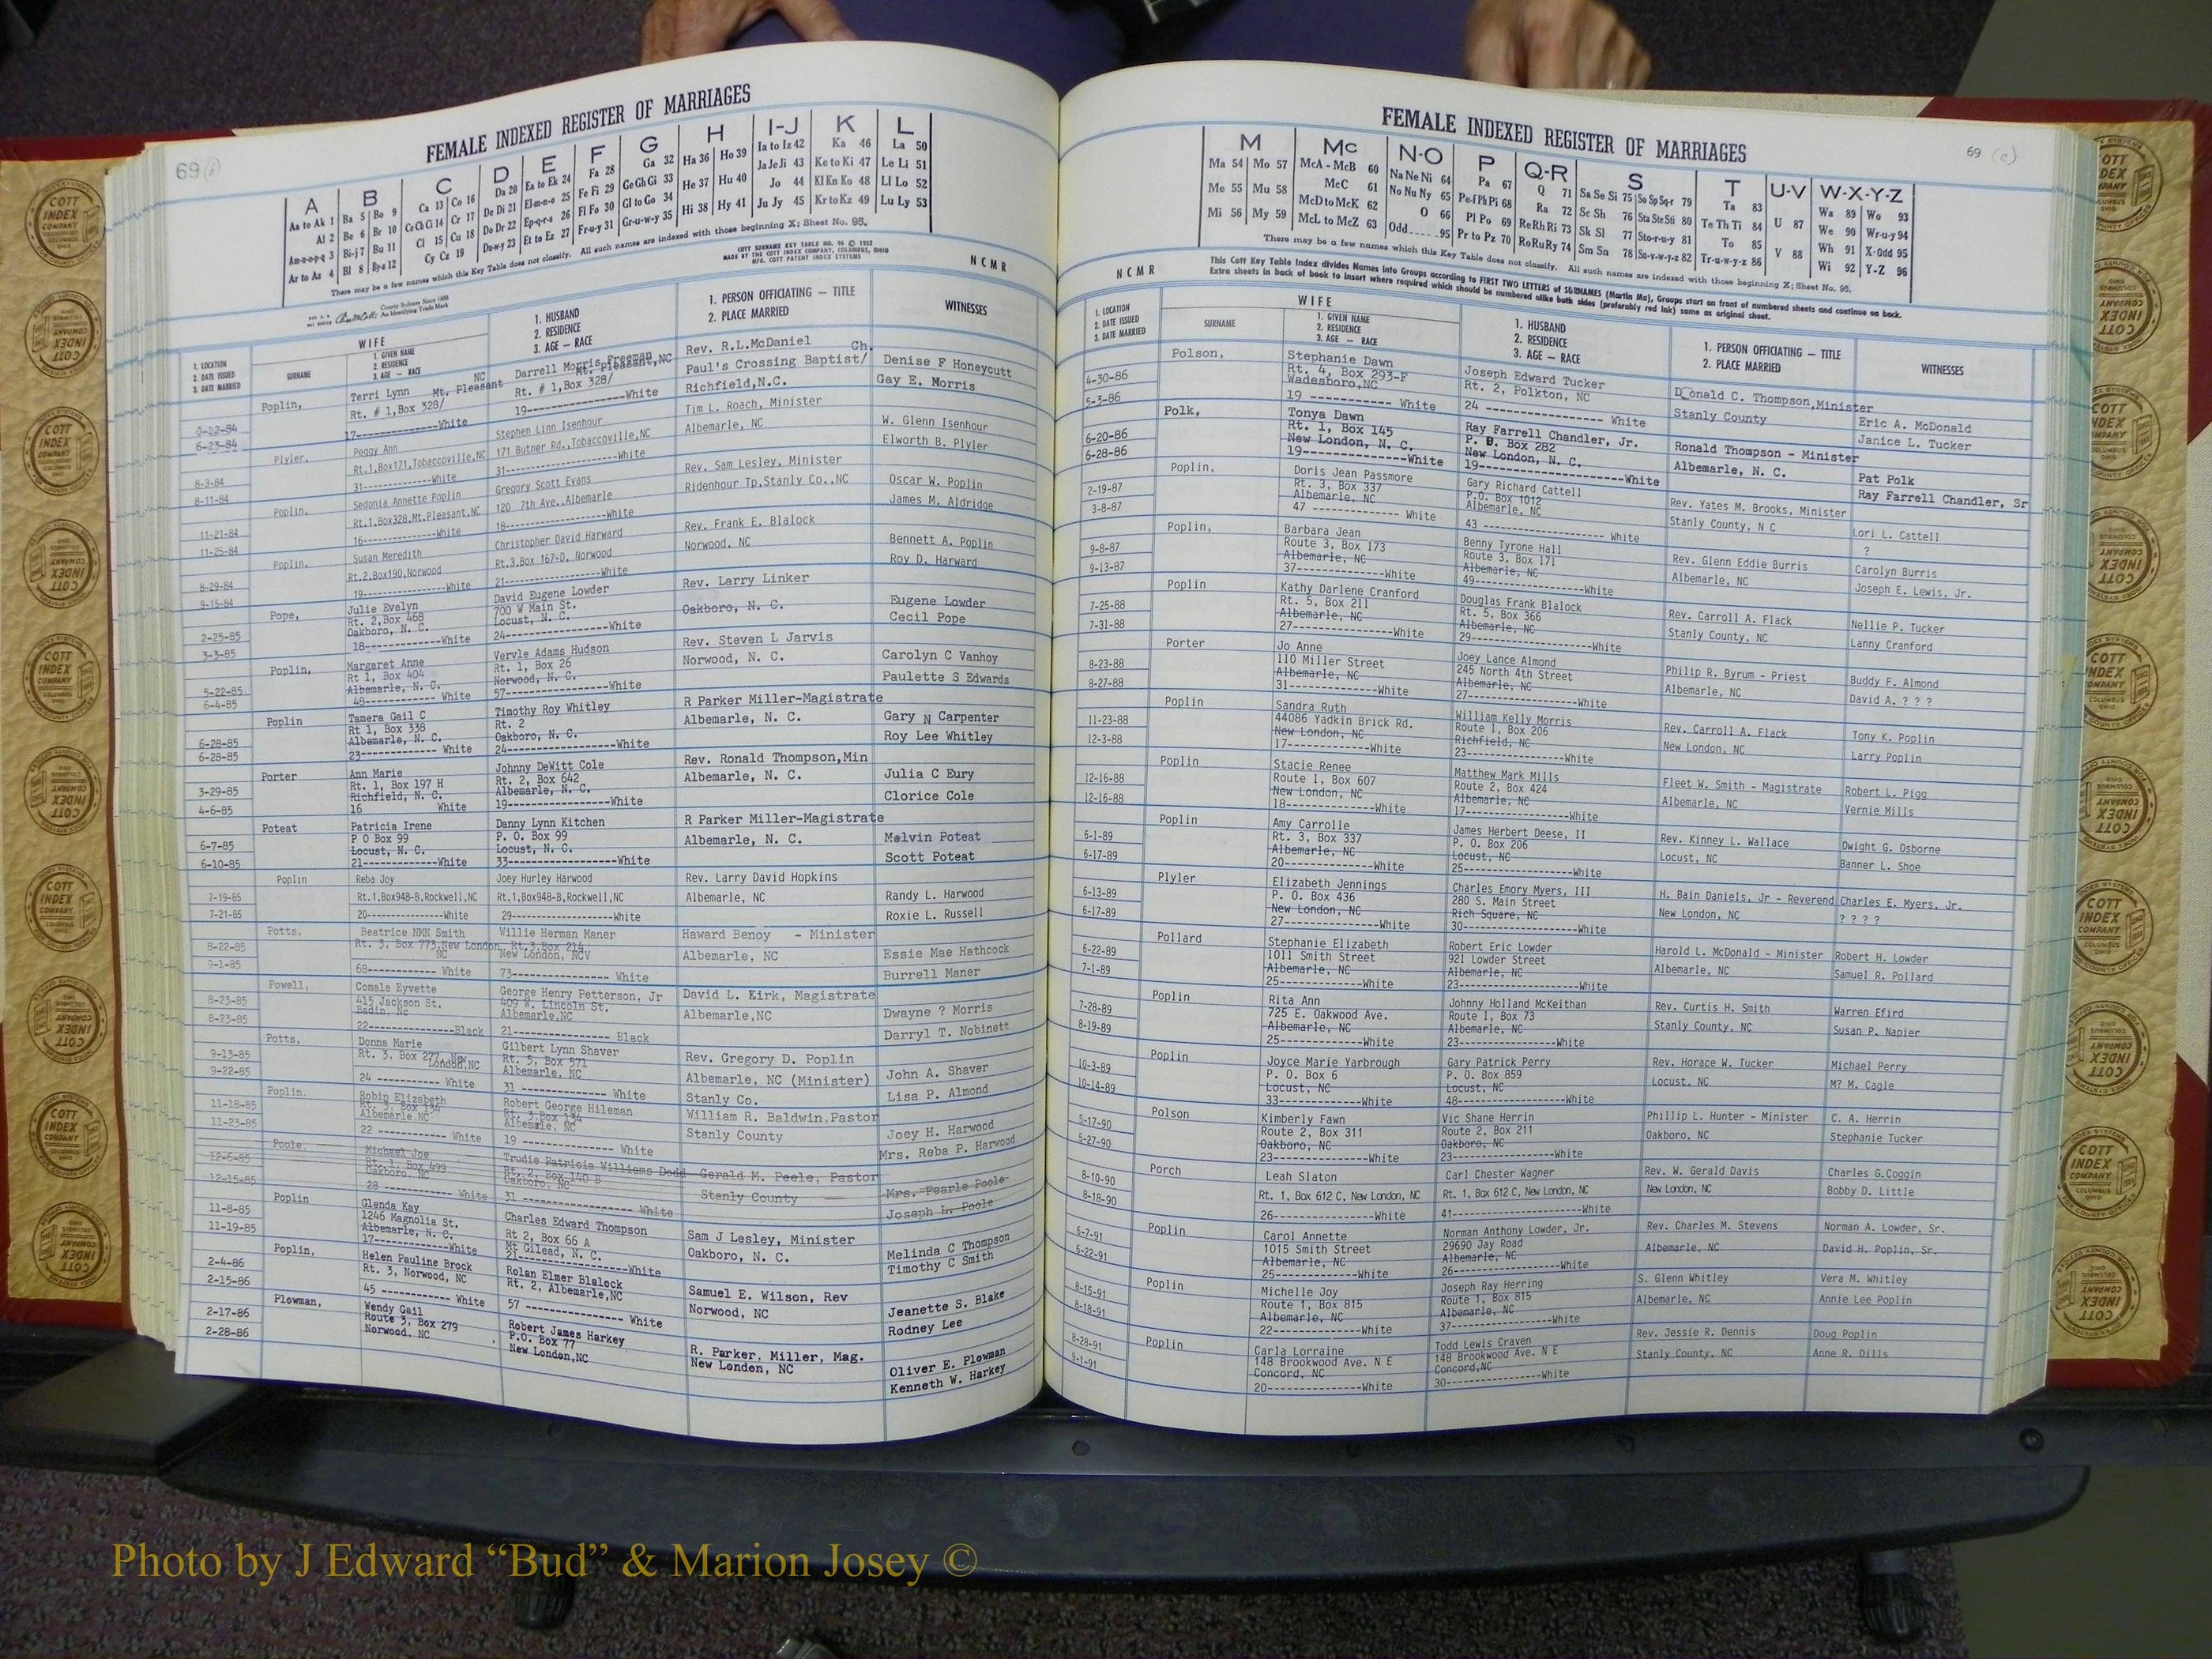 69 (b)
FEMALE INDEXED REGISTER OF MARRIAGES
A B C D E F G H I-J K L
Aa to Ak 1 Ba 5 Bo 9 Ca 13 Co 16 Da 20 Ea to Ek 24 Fa 28 Ga 32 Ha 36 Ho 39 Ia to Iz 42 Ka 46 La 50
Al 2 Be 6 Br 10 Ce Ch Ci 14 Cr 17 De Di 21 El-m-n-o 25 Fe Fi 29 Ge Gh Gi 33 He 37 Hu 40 Ja Je Ji 43 Ke to Ki 47 Le Li 51
Am-n-o-p-q 3 Bi-j 7 Bu 11 Cl 15 Cu 18 Do Dr 22 Ep-q-r-s 26 Fl Fo 30 Gl to Go 34 Hi 38 Hy 41 Jo 44 Kl Kn Ko 48 Ll Lo 52
Ar to Az 4 Bl 8 By-z 12 Cy Cz 19 De-w-y 23 Et to Ez 27 Fr-u-y 31 Gr-u-w-y 35 Ju Jy 45 Kr to Kz 49 Lu Ly 53
There may be a few names which this Key Table does not classify. All such names are indexed with those beginning X; Sheet No. 95.
COTT SURNAME KEY TABLE NO. 96 © 1952
MADE BY THE COTT INDEX COMPANY, COLUMBUS, OHIO
MFG. COTT PATENT INDEX SYSTEMS
County Indexes Since 1888
An Identifying Trade Mark
NCMR
1. LOCATION
2. DATE ISSUED
3. DATE MARRIED
WIFE
SURNAME
1. GIVEN NAME
2. RESIDENCE
3. AGE — RACE
1. HUSBAND
2. RESIDENCE
3. AGE — RACE
1. PERSON OFFICIATING — TITLE
2. PLACE MARRIED
WITNESSES
6-23-84
Poplin,
Terri Lynn Mt. Pleasant NC
Rt. # 1,Box 328/
17--------White
Darrell Morris Freeman
Mt. Pleasant,NC
Rt. # 1,Box 328/
19--------White
Rev. R.L.McDaniel
Paul's Crossing Baptist/ Ch.
Richfield,N.C.
Denise F Honeycutt
Gay E. Morris
8-3-84
8-11-84
Plyler,
Peggy Ann
Rt.1,Box171,Tobaccoville,NC
31--------White
Stephen Linn Isenhour
171 Butner Rd.,Tobaccoville,NC
31--------White
Tim L. Roach, Minister
Albemarle, NC
W. Glenn Isenhour
Elworth B. Plyler
11-21-84
11-25-84
Poplin,
Sedonia Annette Poplin
Rt.1,Box328,Mt.Pleasant,NC
16--------White
Gregory Scott Evans
120 7th Ave.,Albemarle
18--------White
Rev. Sam Lesley, Minister
Ridenhour Tp,Stanly Co.,NC
Oscar W. Poplin
James M. Aldridge
8-29-84
9-15-84
Poplin,
Susan Meredith
Rt.2,Box190,Norwood
19--------White
Christopher David Harward
Rt.3,Box 167-D, Norwood
21--------White
Rev. Frank E. Blalock
Norwood, NC
Bennett A. Poplin
Roy D. Harward
2-25-85
3-3-85
Pope,
Julie Evelyn
Rt. 2,Box 468
Oakboro, N. C.
18--------White
David Eugene Lowder
700 W Main St.
Locust, N. C.
24--------White
Rev. Larry Linker
Oakboro, N. C.
Eugene Lowder
Cecil Pope
5-22-85
6-4-85
Poplin,
Margaret Anne
Rt 1, Box 404
Albemarle, N. C.
48--------White
Vervle Adams Hudson
Rt. 1, Box 26
Norwood, N. C.
57--------White
Rev. Steven L Jarvis
Norwood, N. C.
Carolyn C Vanhoy
Paulette S Edwards
6-28-85
6-28-85
Poplin
Tamera Gail C
Rt 1, Box 338
Albemarle, N. C.
23--------White
Timothy Roy Whitley
Rt. 2
Oakboro, N. C.
24--------White
R Parker Miller-Magistrate
Albemarle, N. C.
Gary N Carpenter
Roy Lee Whitley
3-29-85
4-6-85
Porter
Ann Marie
Rt. 1, Box 197 H
Richfield, N. C.
16 White
Johnny DeWitt Cole
Rt. 2, Box 642
Albemarle, N. C.
19--------White
Rev. Ronald Thompson,Min
Albemarle, N. C.
Julia C Eury
Clorice Cole
6-7-85
6-10-85
Poteat
Patricia Irene
P O Box 99
Locust, N. C.
21--------White
Danny Lynn Kitchen
P. O. Box 99
Locust, N. C.
33--------White
R Parker Miller-Magistrate
Albemarle, N. C.
Melvin Poteat
Scott Poteat
7-19-85
7-21-85
Poplin
Reba Joy
Rt.1,Box948-B,Rockwell,NC
20--------White
Joey Hurley Harwood
Rt.1,Box948-B,Rockwell,NC
29--------White
Rev. Larry David Hopkins
Albemarle, NC
Randy L. Harwood
Roxie L. Russell
8-22-85
9-1-85
Potts,
Beatrice NMN Smith
Rt. 3, Box 773,New London,
NC
68--------White
Willie Herman Maner
Rt.3,Box 214
New London, NCV
73--------White
Haward Benoy - Minister
Albemarle, NC
Essie Mae Hathcock
Burrell Maner
8-23-85
8-23-85
Powell,
Comala Eyvette
415 Jackson St.
Badin, Nc
22--------Black
George Henry Petterson, Jr
409 W. Lincoln St.
Albemarle,NC
21--------Black
David L. Kirk, Magistrate
Albemarle,NC
Dwayne ? Morris
Darryl T. Nobinett
9-13-85
9-22-85
Potts,
Donna Marie
Rt. 3, Box 277, New
London,NC
24--------White
Gilbert Lynn Shaver
Rt. 5, Box 571
Albemarle, NC
31--------White
Rev. Gregory D. Poplin
Albemarle, NC (Minister)
Stanly Co.
John A. Shaver
Lisa P. Almond
11-18-85
11-23-85
Poplin.
Robin Elizabeth
Rt. 3, Box 134
Albemarle NC
22--------White
Robert George Hileman
Rt. 3,Box 134
Albemarle, NC
19--------White
William R. Baldwin,Pastor
Stanly County
Joey H. Harwood
Mrs. Reba P. Harwood
12-6-85
12-15-85
Poole,
Michael Joe
Rt. 1, Box 499
Oakboro, NC
28--------White
Trudie Patricia Williams Dodd
Rt. 2, Box 140 B
Oakboro, NC
31--------White
Gerald M. Peele, Pastor
Stanly County
Mrs. Pearle Poole
Joseph L. Poole
11-8-85
11-19-85
Poplin
Glenda Kay
1246 Magnolia St.
Albemarle, N. C.
17--------White
Charles Edward Thompson
Rt 2, Box 66 A
Mt Gilead, N. C.
21--------White
Sam J Lesley, Minister
Oakboro, N. C.
Melinda C Thompson
Timothy C Smith
2-4-86
2-15-86
Poplin,
Helen Pauline Brock
Rt. 3, Norwood, NC
45--------White
Rolan Elmer Blalock
Rt. 2, Albemarle,NC
57--------White
Samuel E. Wilson, Rev
Norwood, NC
Jeanette S. Blake
Rodney Lee
2-17-86
2-28-86
Plowman,
Wendy Gail
Route 3, Box 279
Norwood, NC
Robert James Harkey
P.O. Box 77
New London,NC
R. Parker, Miller, Mag.
New London, NC
Oliver E. Plowman
Kenneth W. Harkey
69 (c)
FEMALE INDEXED REGISTER OF MARRIAGES
M Mc N-O P Q-R S T U-V W-X-Y-Z
Ma 54 Mo 57 McA - McB 60 Na Ne Ni 64 Pa 67 Q 71 Sa Se Si 75 So Sp Sq-r 79 Ta 83 U 87 Wa 89 Wo 93
Me 55 Mu 58 McC 61 No Nu Ny 65 Pe-f Ph Pi 68 Ra 72 Sc Sh 76 Sta Ste Sti 80 Te Th Ti 84 We 90 Wr-u-y 94
Mi 56 My 59 McD to McK 62 O 66 Pl Po 69 Re Rh Ri 73 Sk Sl 77 Sto-r-u-y 81 To 85 V 88 Wh 91 X-Odd 95
McL to McZ 63 Odd 95 Pr to Pz 70 Ro Ru Ry 74 Sm Sn 78 Su-v-w-y-z 82 Tr-u-w-y-z 86 Wi 92 Y-Z 96
There may be a few names which this Key Table does not classify. All such names are indexed with those beginning X; Sheet No. 95.
This Cott Key Table Index divides Names into Groups according to FIRST TWO LETTERS of SURNAMES (Martin Ma), Groups start on front of numbered sheets and continue on back.
Extra sheets in back of book to insert where required which should be numbered alike both sides (preferably red ink) same as original sheet.
NCMR
1. LOCATION
2. DATE ISSUED
3. DATE MARRIED
WIFE
SURNAME
1. GIVEN NAME
2. RESIDENCE
3. AGE — RACE
1. HUSBAND
2. RESIDENCE
3. AGE — RACE
1. PERSON OFFICIATING — TITLE
2. PLACE MARRIED
WITNESSES
4-30-86
5-3-86
Polson,
Stephanie Dawn
Rt. 4, Box 293-F
Wadesboro,NC
19--------White
Joseph Edward Tucker
Rt. 2, Polkton, NC
24--------White
Donald C. Thompson,Minister
Stanly County
Eric A. McDonald
Janice L. Tucker
6-20-86
6-28-86
Polk,
Tonya Dawn
Rt. 1, Box 145
New London, N. C.
19--------White
Ray Farrell Chandler, Jr.
P. O. Box 282
New London, N. C.
19--------White
Ronald Thompson - Minister
Albemarle, N. C.
Pat Polk
Ray Farrell Chandler, Sr
2-19-87
3-8-87
Poplin,
Doris Jean Passmore
Rt. 3, Box 337
Albemarle, NC
47--------White
Gary Richard Cattell
P.O. Box 1012
Albemarle, NC
43--------White
Rev. Yates M. Brooks, Minister
Stanly County, N C
Lori L. Cattell
?
9-8-87
9-13-87
Poplin,
Barbara Jean
Route 3, Box 173
Albemarle, NC
37--------White
Benny Tyrone Hall
Route 3, Box 171
Albemarle, NC
49--------White
Rev. Glenn Eddie Burris
Albemarle, NC
Carolyn Burris
Joseph E. Lewis, Jr.
7-25-88
7-31-88
Poplin
Kathy Darlene Cranford
Rt. 5, Box 211
Albemarle, NC
27--------White
Douglas Frank Blalock
Rt. 5, Box 366
Albemarle, NC
29--------White
Rev. Carroll A. Flack
Stanly County, NC
Nellie P. Tucker
Lanny Cranford
8-23-88
8-27-88
Porter
Jo Anne
110 Miller Street
Albemarle, NC
31--------White
Joey Lance Almond
245 North 4th Street
Albemarle, NC
27--------White
Philip R. Byrum - Priest
Albemarle, NC
Buddy F. Almond
David A. ? ? ?
11-23-88
12-3-88
Poplin
Sandra Ruth
44086 Yadkin Brick Rd.
New London, NC
17--------White
William Kelly Morris
Route 1, Box 206
Richfield, NC
23--------White
Rev. Carroll A. Flack
New London, NC
Tony K. Poplin
Larry Poplin
12-16-88
12-16-88
Poplin
Stacie Renee
Route 1, Box 607
New London, NC
18--------White
Matthew Mark Mills
Route 2, Box 424
Albemarle, NC
17--------White
Fleet W. Smith - Magistrate
Albemarle, NC
Robert L. Pigg
Vernie Mills
6-1-89
6-17-89
Poplin
Amy Carrolle
Rt. 3, Box 337
Albemarle, NC
20--------White
James Herbert Deese, II
P. O. Box 206
Locust, NC
25--------White
Rev. Kinney L. Wallace
Locust, NC
Dwight G. Osborne
Banner L. Shoe
6-13-89
6-17-89
Plyler
Elizabeth Jennings
P. O. Box 436
New London, NC
27--------White
Charles Emory Myers, III
280 S. Main Street
Rich Square, NC
30--------White
H. Bain Daniels, Jr - Reverend
New London, NC
Charles E. Myers, Jr.
? ? ? ?
6-22-89
7-1-89
Pollard
Stephanie Elizabeth
1011 Smith Street
Albemarle, NC
25--------White
Robert Eric Lowder
921 Lowder Street
Albemarle, NC
23--------White
Harold L. McDonald - Minister
Albemarle, NC
Robert H. Lowder
Samuel R. Pollard
7-28-89
8-19-89
Poplin
Rita Ann
725 E. Oakwood Ave.
Albemarle, NC
25--------White
Johnny Holland McKeithan
Route 1, Box 73
Albemarle, NC
23--------White
Rev. Curtis H. Smith
Stanly County, NC
Warren Efird
Susan P. Napier
10-3-89
10-14-89
Poplin
Joyce Marie Yarbrough
P. O. Box 6
Locust, NC
33--------White
Gary Patrick Perry
P. O. Box 859
Locust, NC
48--------White
Rev. Horace W. Tucker
Locust, NC
Michael Perry
M? M. Cagle
5-17-90
5-27-90
Polson
Kimberly Fawn
Route 2, Box 311
Oakboro, NC
23--------White
Vic Shane Herrin
Route 2, Box 211
Oakboro, NC
23--------White
Phillip L. Hunter - Minister
Oakboro, NC
C. A. Herrin
Stephanie Tucker
8-10-90
8-18-90
Porch
Leah Slaton
Rt. 1, Box 612 C, New London, NC
26--------White
Carl Chester Wagner
Rt. 1, Box 612 C, New London, NC
41--------White
Rev. W. Gerald Davis
New London, NC
Charles G.Coggin
Bobby D. Little
6-7-91
6-22-91
Poplin
Carol Annette
1015 Smith Street
Albemarle, NC
25--------White
Norman Anthony Lowder, Jr.
29690 Jay Road
Albemarle, NC
26--------White
Rev. Charles M. Stevens
Albemarle, NC
Norman A. Lowder, Sr.
David H. Poplin, Sr.
8-15-91
8-18-91
Poplin
Michelle Joy
Route 1, Box 815
Albemarle, NC
22--------White
Joseph Ray Herring
Route 1, Box 815
Albemarle, NC
37--------White
S. Glenn Whitley
Albemarle, NC
Vera M. Whitley
Annie Lee Poplin
8-28-91
9-1-91
Poplin
Carla Lorraine
148 Brookwood Ave. N E
Concord, NC
20--------White
Todd Lewis Craven
148 Brookwood Ave. N E
Concord,NC
30--------White
Rev. Jessie R. Dennis
Stanly County, NC
Doug Poplin
Anne R. Dills
COTT INDEX COMPANY
Photo by J Edward “Bud” & Marion Josey ©